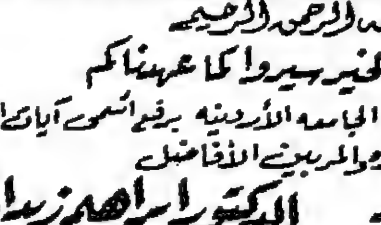 الرحمن الرحيم
لخير سيروا كما عهدناكم
الجامعه الأردنيه يرفع أسمى آيات
والمربين الأفاضل
الدكتور ابراهيم زيد